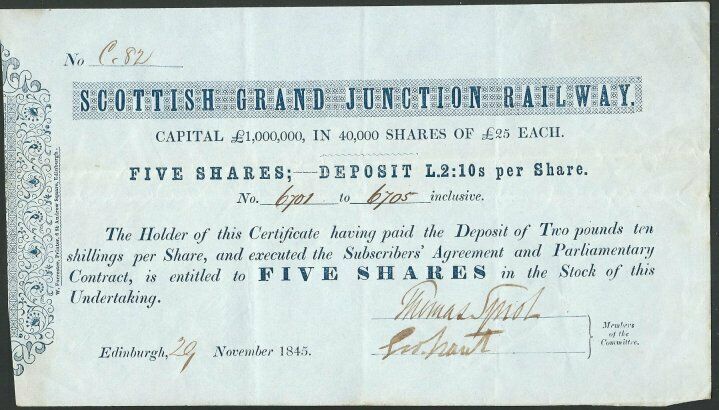 No C.82
SCOTTISH GRAND JUNCTION RAILWAY.
CAPITAL £1,000,000, IN 40,000 SHARES OF £25 EACH.
FIVE SHARES;—DEPOSIT L.2:10s per Share.
No. 6701 to 6705 inclusive.
The Holder of this Certificate having paid the Deposit of Two pounds ten
shillings per Share, and executed the Subscribers' Agreement and Parliamentary
Contract, is entitled to FIVE SHARES in the Stock of this
Undertaking.
Thomas
Edinburgh, 29 November 1845.
Members
of the
Committee.
Printer, St Andrew Square, Edinburgh.